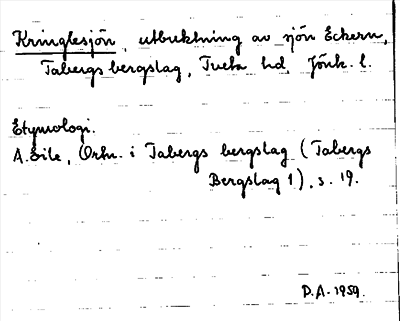 Kringlesjön, utbuktning av sjön Eckern,
Tabergs bergslag, Tveta hd, Jönk. l.
Etymologi.
A. Eile, Ortn. i Tabergs bergslag (Tabergs
Bergslag 1), s. 19.
P.A. 1959.